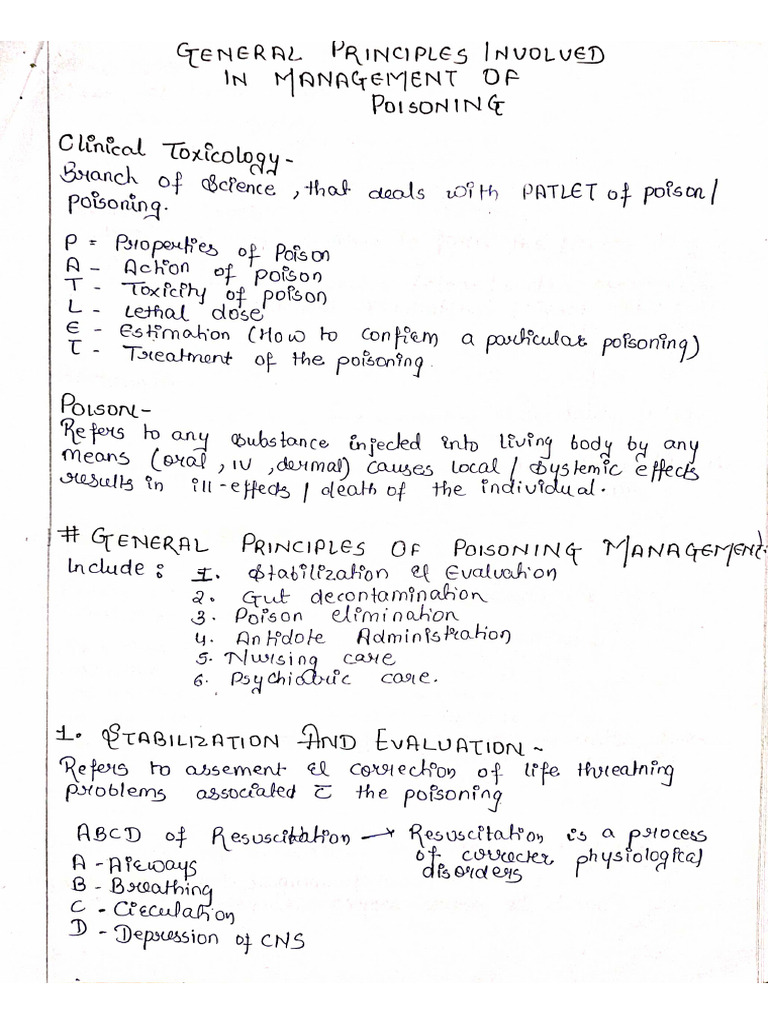 GENERAL PRINCIPLES INVOLVED
IN MANAGEMENT OF
POISONING
Clinical Toxicology-
Branch of Science, that deals with PATLET of poison/
poisoning.
P = Properties of Poison
A - Action of poison
T - Toxicity of poison
L - Lethal dose
E - Estimation (How to confirm a particular poisoning)
T - Treatment of the poisoning.
POISON-
Refers to any substance injected into living body by any
means (oral, IV, dermal) causes local / systemic effects
results in ill-effects / death of the individual.
# GENERAL PRINCIPLES OF POISONING MANAGEMENT
Include : 1. Stabilization & Evaluation
2. Gut decontamination
3. Poison elimination
4. Antidote Administration
5. Nursing care
6. Psychiatric care.
1. STABILIZATION AND EVALUATION -
Refers to assement & correction of life threatning
problems associated c̄ the poisoning
ABCD of Resuscitation → Resuscitation is a process
of correcter physiological
disorders
A - Airways
B - Breathing
C - Circulation
D - Depression of CNS